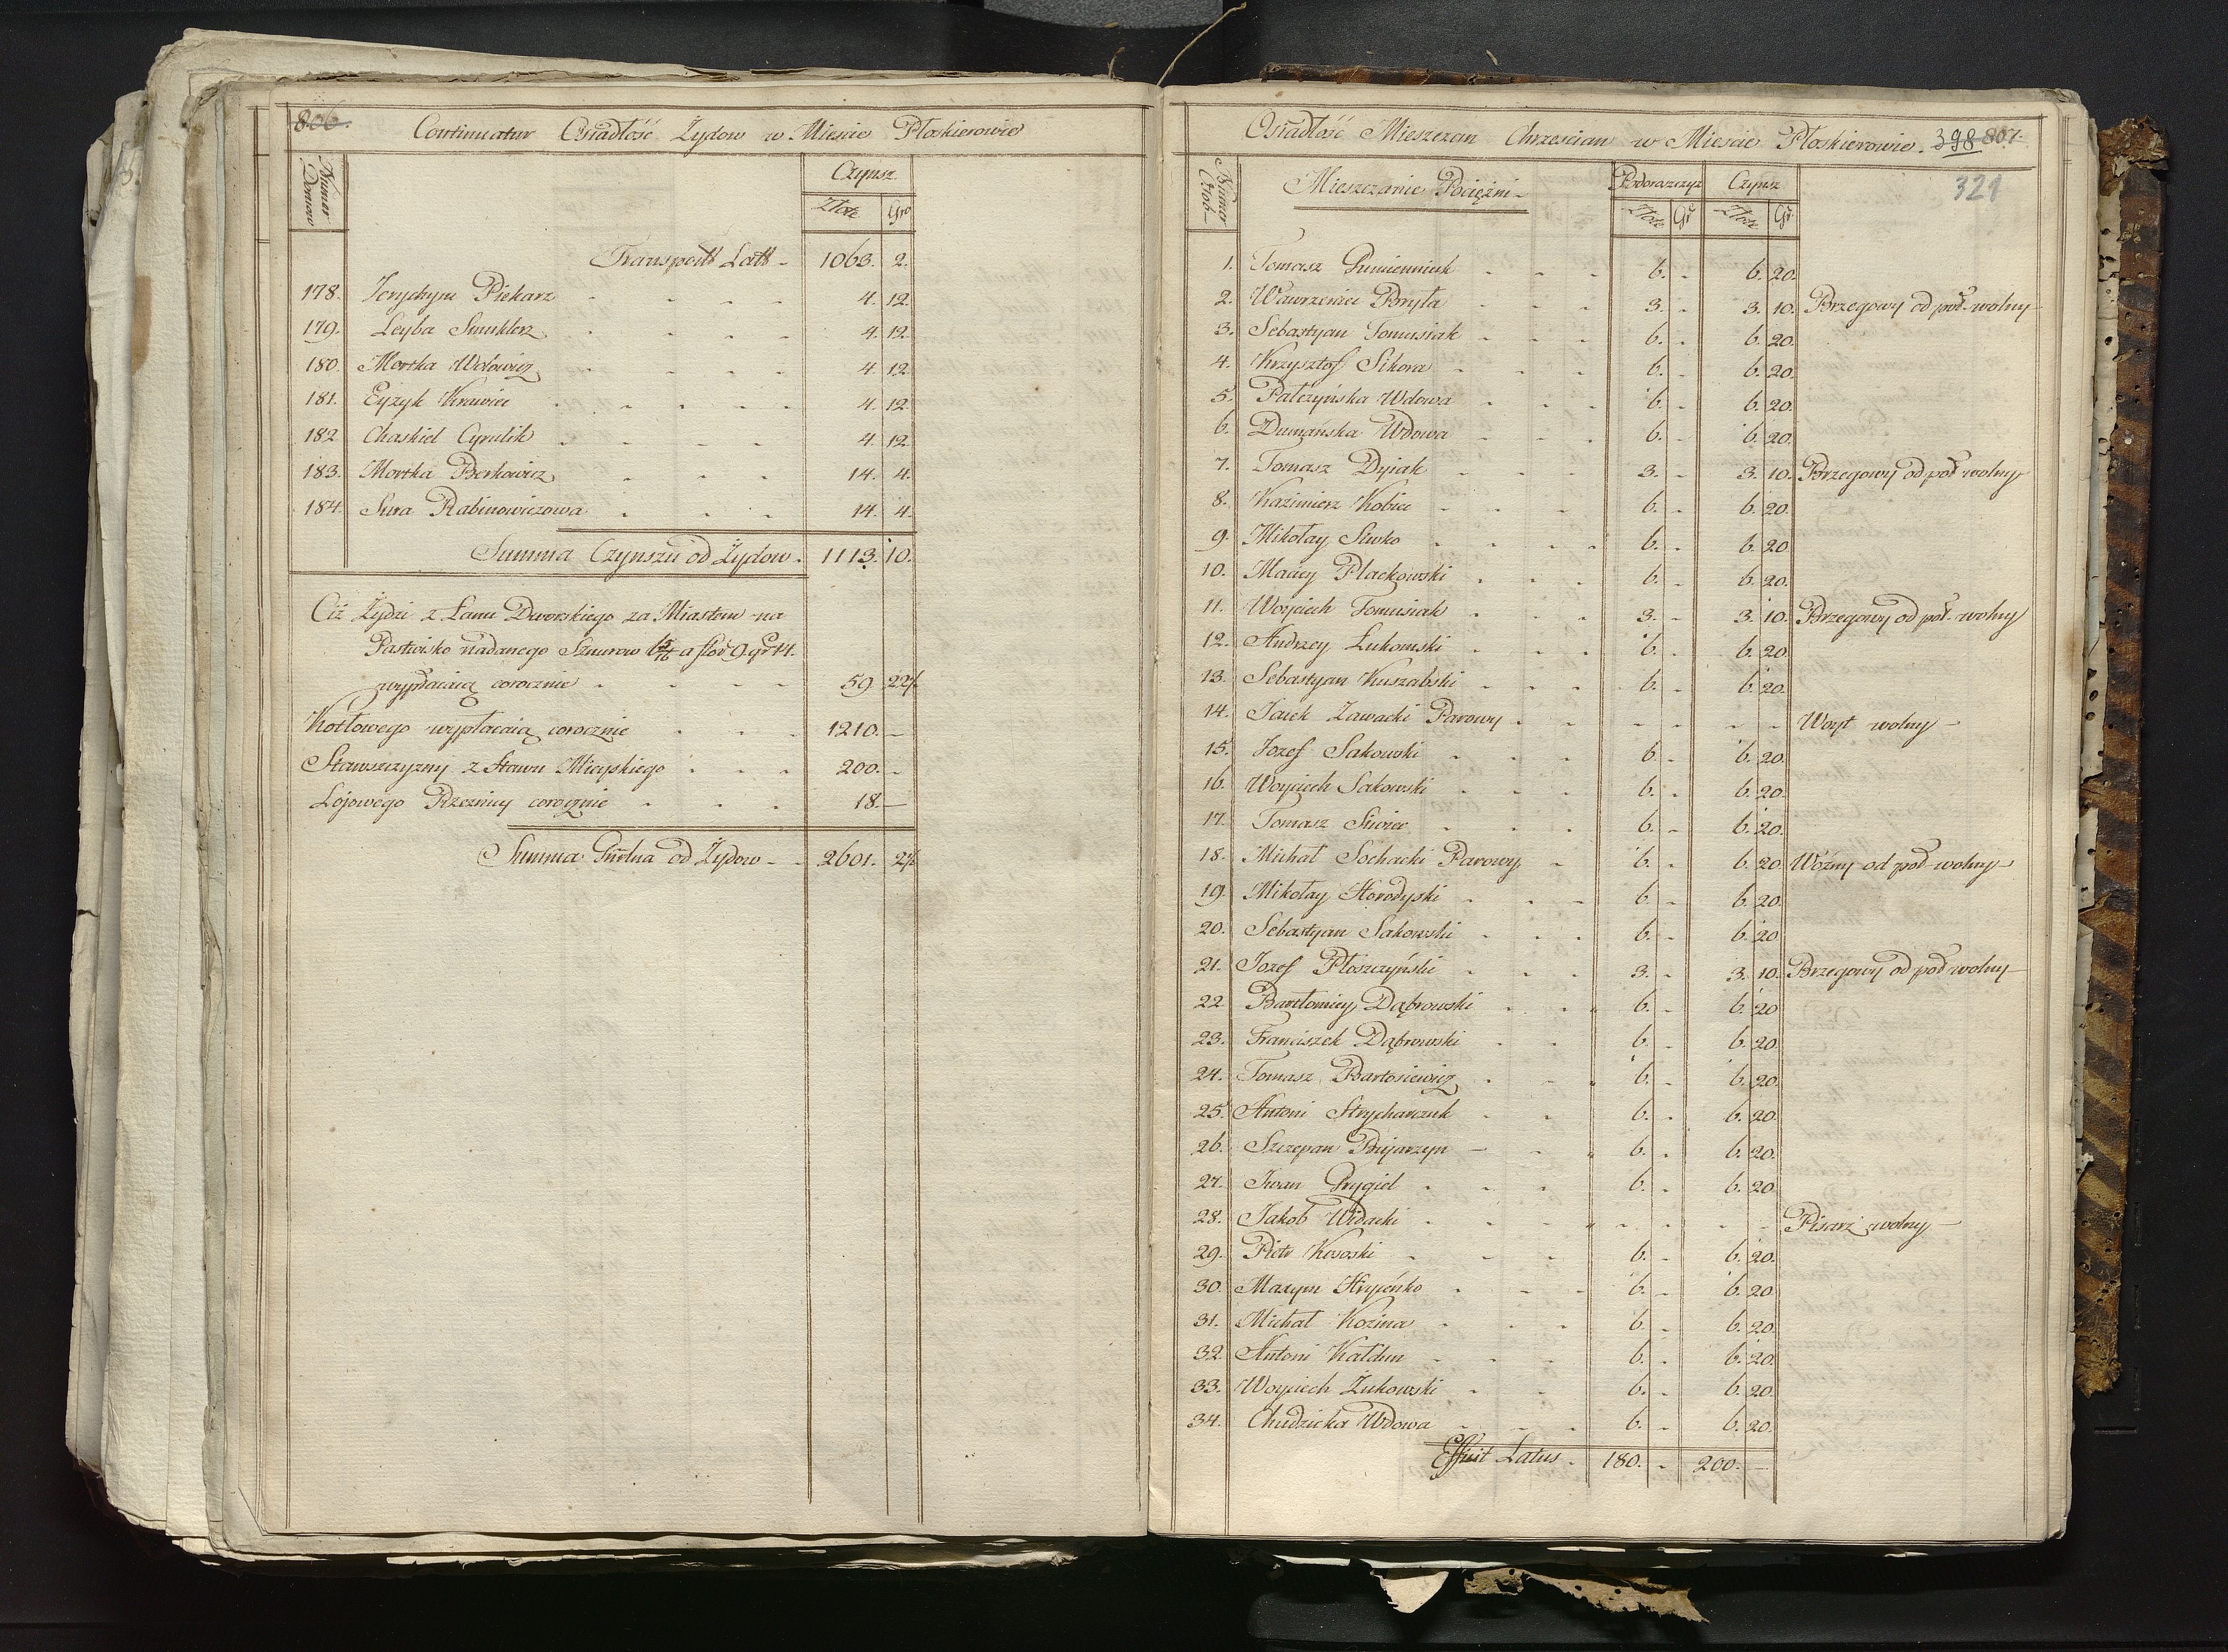 806.
Continuatur Osiadłość Żydow w Miescie Płoskierowie
Numer Domow
Czynsz
Złote Gro
Transport Latt - 1063. 2.
178. Jerychym Piekarz - - - - 4. 12.
179. Leyba Smuklerz - - - 4. 12.
180. Mortka Wolowicz - - - - 4. 12
181. Eyzyk Krawiec - - - - - 4. 12.
182 Chaskiel Cyrulik - - - - 4. 12.
183. Mortka Berkowicz - - - 14. 4.
184. Sura Rabinowiczowa - - - 14. 4.
Summa Czynszu od Żydow. 1113. 10.
Ciż Żydzi z Łanu Dworskiego za Miastem na
Pastwisko nadanego Sznurow a złot 9. gr 14.
wypłacaią corocznie - - - - 59 22½
Kotłowego wypłacaią corocznie - - - 1210. -
Stawszczyzny z Stawu Mieyskiego - - - 200. -
Łojowego Rzeziny corocznie - - - 18. -
Summa Gnrlna od Żydow - - 2601. 2½
Osiadłość Mieszczan Chrzescian w Miescie Płoskierowie. 398 807.
321
Numer Osob
Mieszczanie Pociężni -
Podoraszczyz Czynsz
Złote Gr Złote Gr
1. Tomasz Gumienniuk - - - 6. - 6. 20.
2. Wawrzeniec Bryła - - - 3. - 3. 10. Brzegowy od poł wolny
3. Sebastyan Tomusiak - - - 6. - 6. 20.
4. Krzysztof Sikora - - - 6. - 6. 20.
5. Pałczyńska Wdowa - - - 6. - 6. 20.
6. Dumańska Wdowa - - - 6. - 6. 20.
7. Tomasz Dyiak - - - 3. - 3. 10. Brzegowy od poł wolny
8. Kazimierz Kobiec - - - 6. - 6. 20.
9. Mikołay Siwko - - - - 6. - 6. 20
10. Maciey Plackowski - - - 6. - 6. 20.
11. Woyciech Tomusiak - - - 3. - 3. 10. Brzegowy od poł wolny
12. Andrzey Łukowski - - - 6. - 6. 20.
13. Sebastyan Kuszabski - - - 6. - 6. 20.
14. Jacek Zawacki Parowy - - - - - - Woyt wolny -
15. Jozef Sakowski - - - 6. - 6. 20.
16. Woyciech Sakowski - - - 6. - 6. 20.
17. Tomasz Siwiec - - - 6. - 6. 20.
18. Michał Sochacki Parowy - 6. - 6. 20. Woźny od poł wolny
19. Mikołay Horodyski - - - 6. - 6. 20.
20. Sebastyan Sakowski - - - 6. - 6. 20
21. Jozef Płoszczyński - - - 3. - 3. 10. Brzegowy od poł wolny
22. Bartłomiey Dąbrowski - - - 6. - 6. 20
23. Franciszek Dąbrowski - - 6. - 6. 20
24. Tomasz Bartosiewicz - - - 6. - 6. 20.
25. Antoni Strycharczuk - - 6. - 6. 20.
26. Szczepan Bujarzyn - - - 6. - 6. 20.
27. Iwan Grygiel - - - 6. - 6. 20
28. Jakob Widacki - - - - - - - - Pisarz wolny -
29. Piotr Kwoski - - - 6. - 6. 20.
30. Maxym Hryćńko - - - 6. - 6. 20.
31. Michał Kozina - - - 6. - 6. 20.
32. Antoni Kałdun - - - 6. - 6. 20.
33. Woyciech Żukowski - - 6. - 6. 20.
34. Chudzicka Wdowa - - - 6. - 6. 20.
Efficit Latus - 180. - 200. -